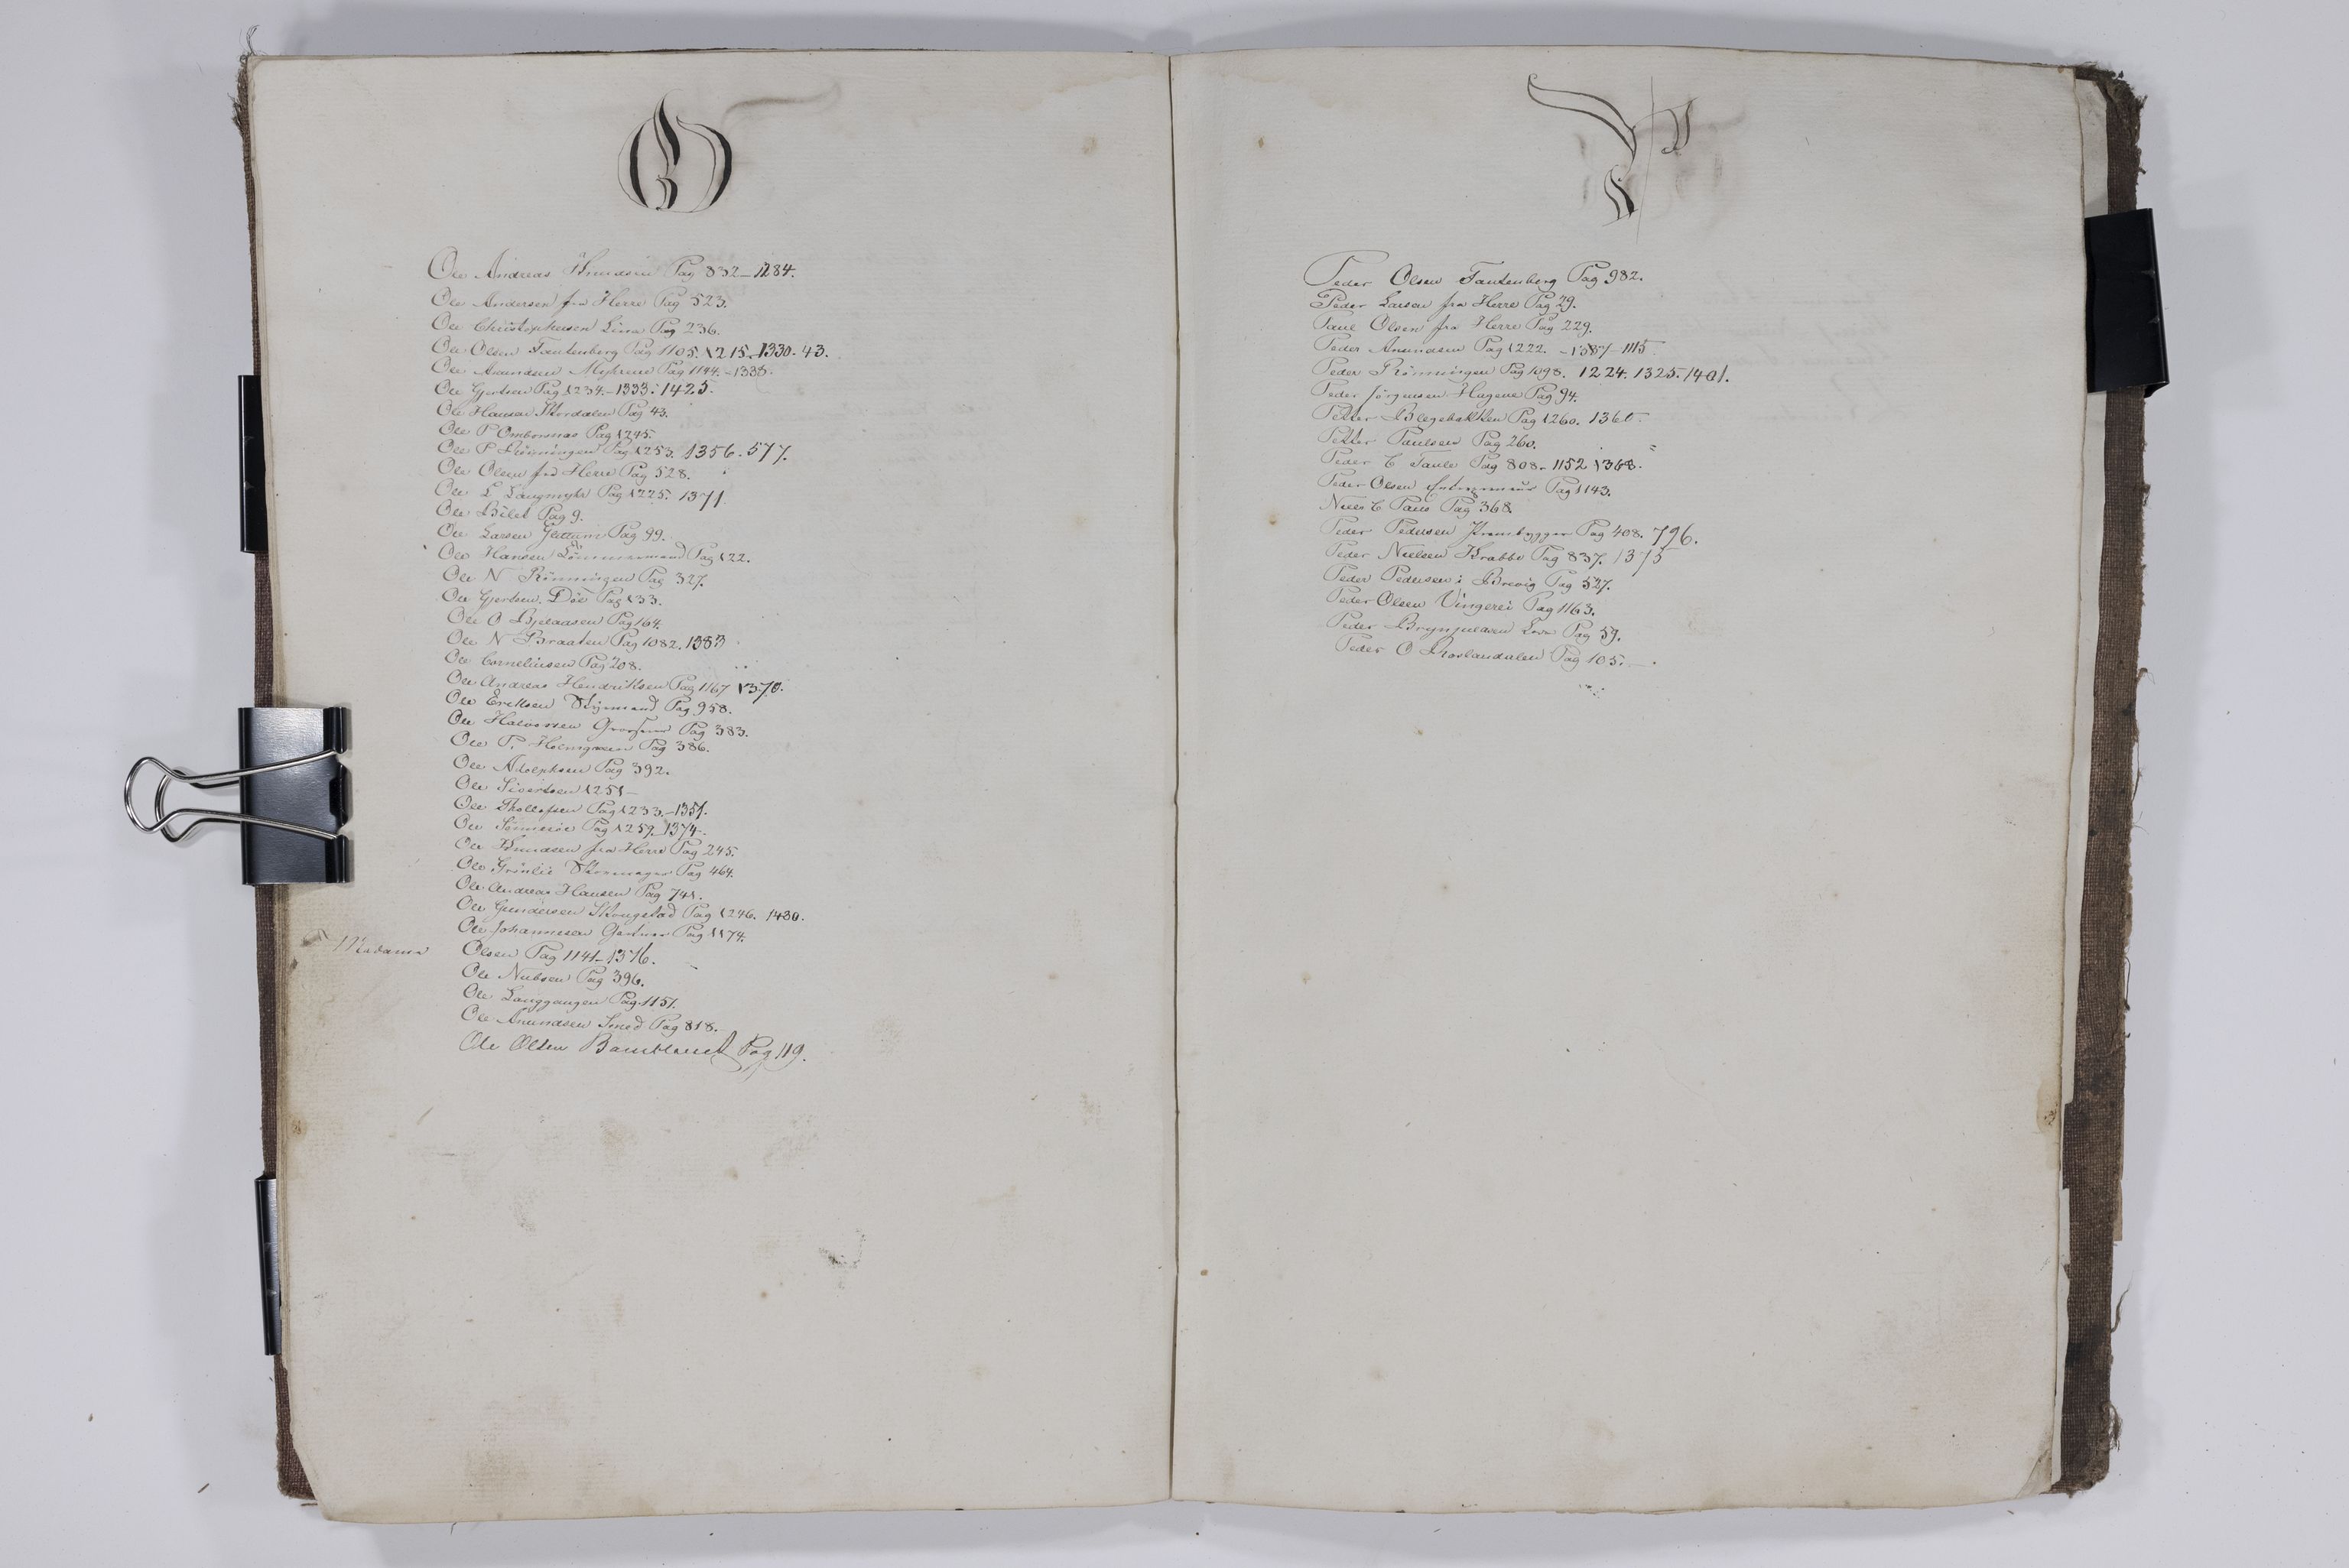 O
Ole Andreas Knudsen Pag 832 – 1284.
Ole Andersen fra Herre Pag 523.
Ole Christophersen Lina Pag 236.
Ole Olsen Tautenberg Pag 1105. 1215. 1330. 43.
Ole Amundsen Myhrene Pag 1144. – 1338.
Ole Gjertsen Pag 1234. – 1333. 1425.
Ole Hansen Pag 43.
Ole P Ombornæs Pag 1245.
Ole P Rönningen Pag 1253. 1356. 577.
Ole Olsen fra Herre Pag 528.
Ole L Langmyhr Pag 1225. 1371
Ole Bilet Pag 9.
Ole Larsen Pag 99.
Ole Hansen Pag 122.
Ole N Rönningen Pag 327.
Ole Gjertsen Döe Pag 133.
Ole O Bjelaasen Pag 164.
Ole N Braaten Pag 1082. 1383
Ole Corneliusen Pag 208.
Ole Andreas Hendriksen Pag 1167 1370.
Ole Eriksen Styrmand Pag 958.
Ole Halvorsen Pag 383.
Ole P. Holmgreen Pag 386.
Ole Adolphsen Pag 392.
Ole Sivertsen 1251 –
Ole Thollefsen Pag 1233. – 1351.
Ole Pag 1259. 1374 –
Ole Knudsen fra Herre Pag 245.
Ole Grönlie Skomager Pag 464.
Ole Andreas Hansen Pag 741.
Ole Gundersen Skougstad Pag 1246. 1430.
Ole Johannesen Gartner Pag 1174.
Madame Olsen Pag 1141 – 1376.
Ole Nielsen Pag 396.
Ole Langgangen Pag. 1151.
Ole Amundsen Smed Pag 818.
Ole Olsen Pag 119.
P
Peder Olsen Tautenberg Pag 982.
Peder Larsen fra Herre Pag 29.
Paul Olsen fra Herre Pag 229.
Peder Amundsen Pag 1222. – 1387 – 1115
Peder Rönningen Pag 1098. 1224. 1325. 1401.
Peder Jörgensen Hagene Pag 94.
Petter Blegebakken Pag 1260. 1360.
Petter Paulsen Pag 260.
Peder C Pag 808 – 1152 1368.
Peder Olsen Entrepreneur Pag 1143.
Niels C Paus Pag 368.
Peder Pedersen Prambygger Pag 408. 796.
Peder Nielsen Krabbe Pag 837. 1375
Peder Pedersen i Brevig Pag 527.
Peder Olsen Vingerei Pag 1163.
Peder Brynjulsen Pag 59.
Peder O Roslandalen Pag 105. –